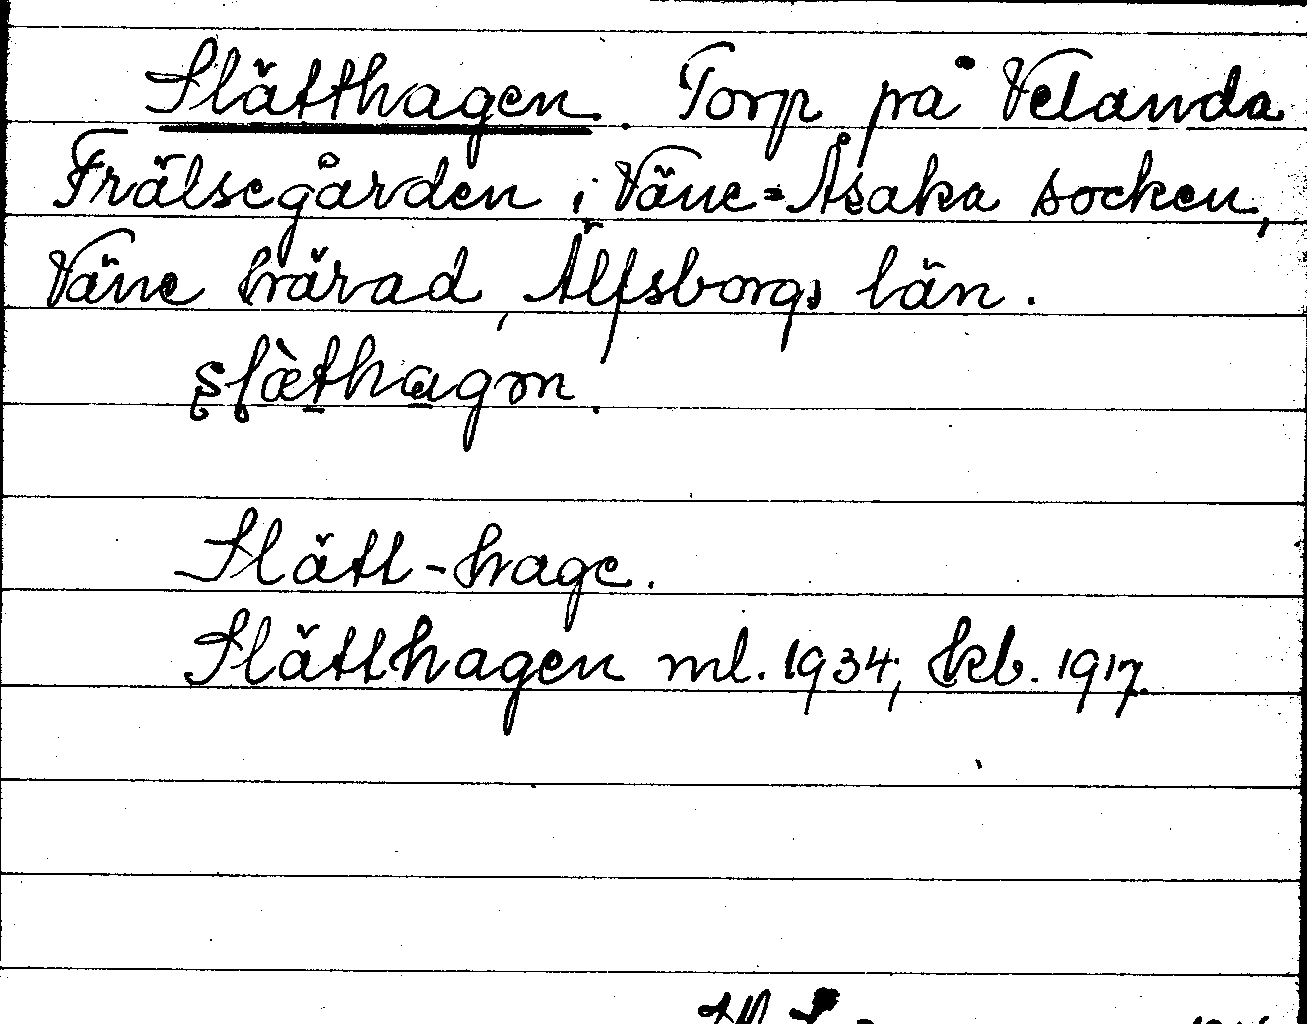 Slätthagen. Torp på Velanda
Frälsegården i Väne-Åsaka socken,
Väne härad, Älfsborgs län.
slæ̀thagən.
Slått-hage.
Slätthagen ml. 1934, kb. 1917.